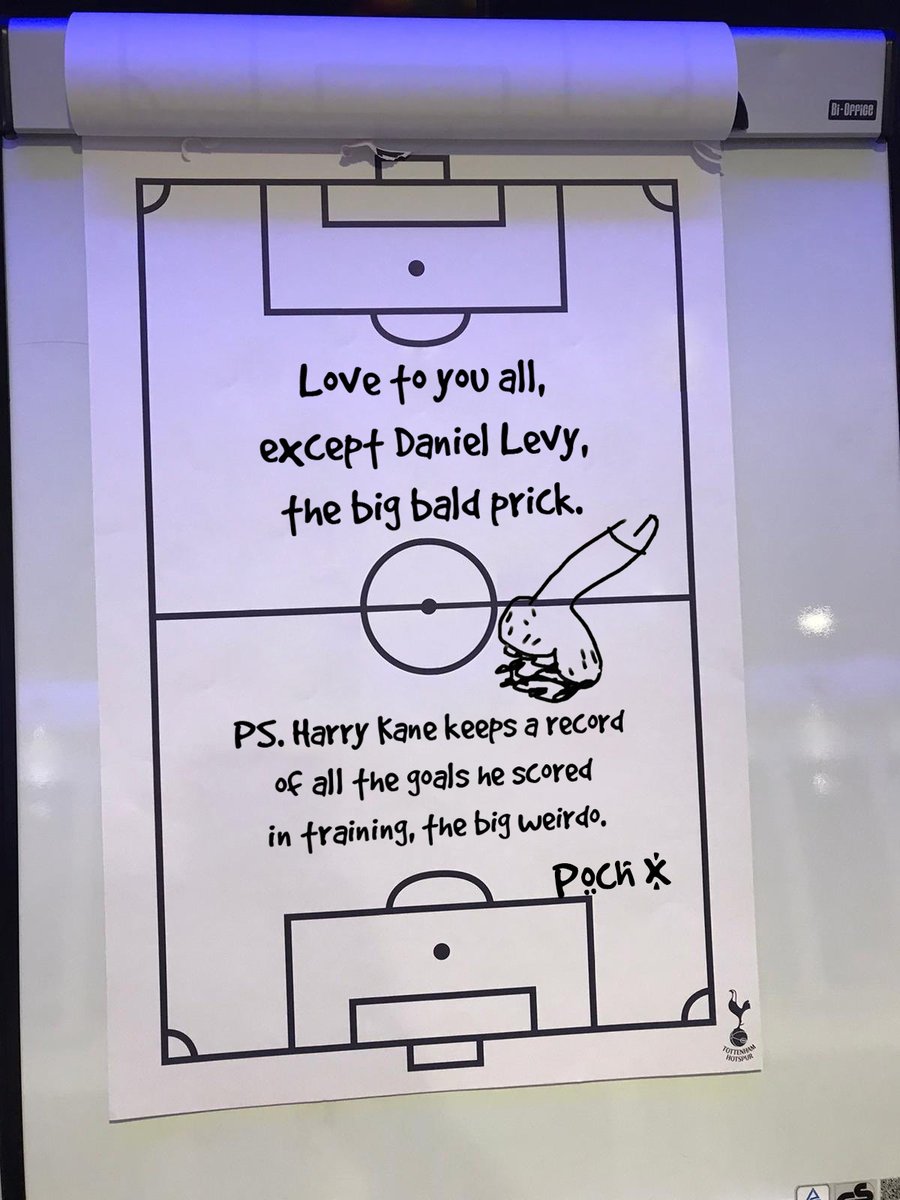 Bi-Office
Love to you all,
except Daniel Levy,
the big bald prick.
PS. Harry Kane keeps a record
of all the goals he scored
in training, the big weirdo.
Poch X
TOTTENHAM
HOTSPUR
GS